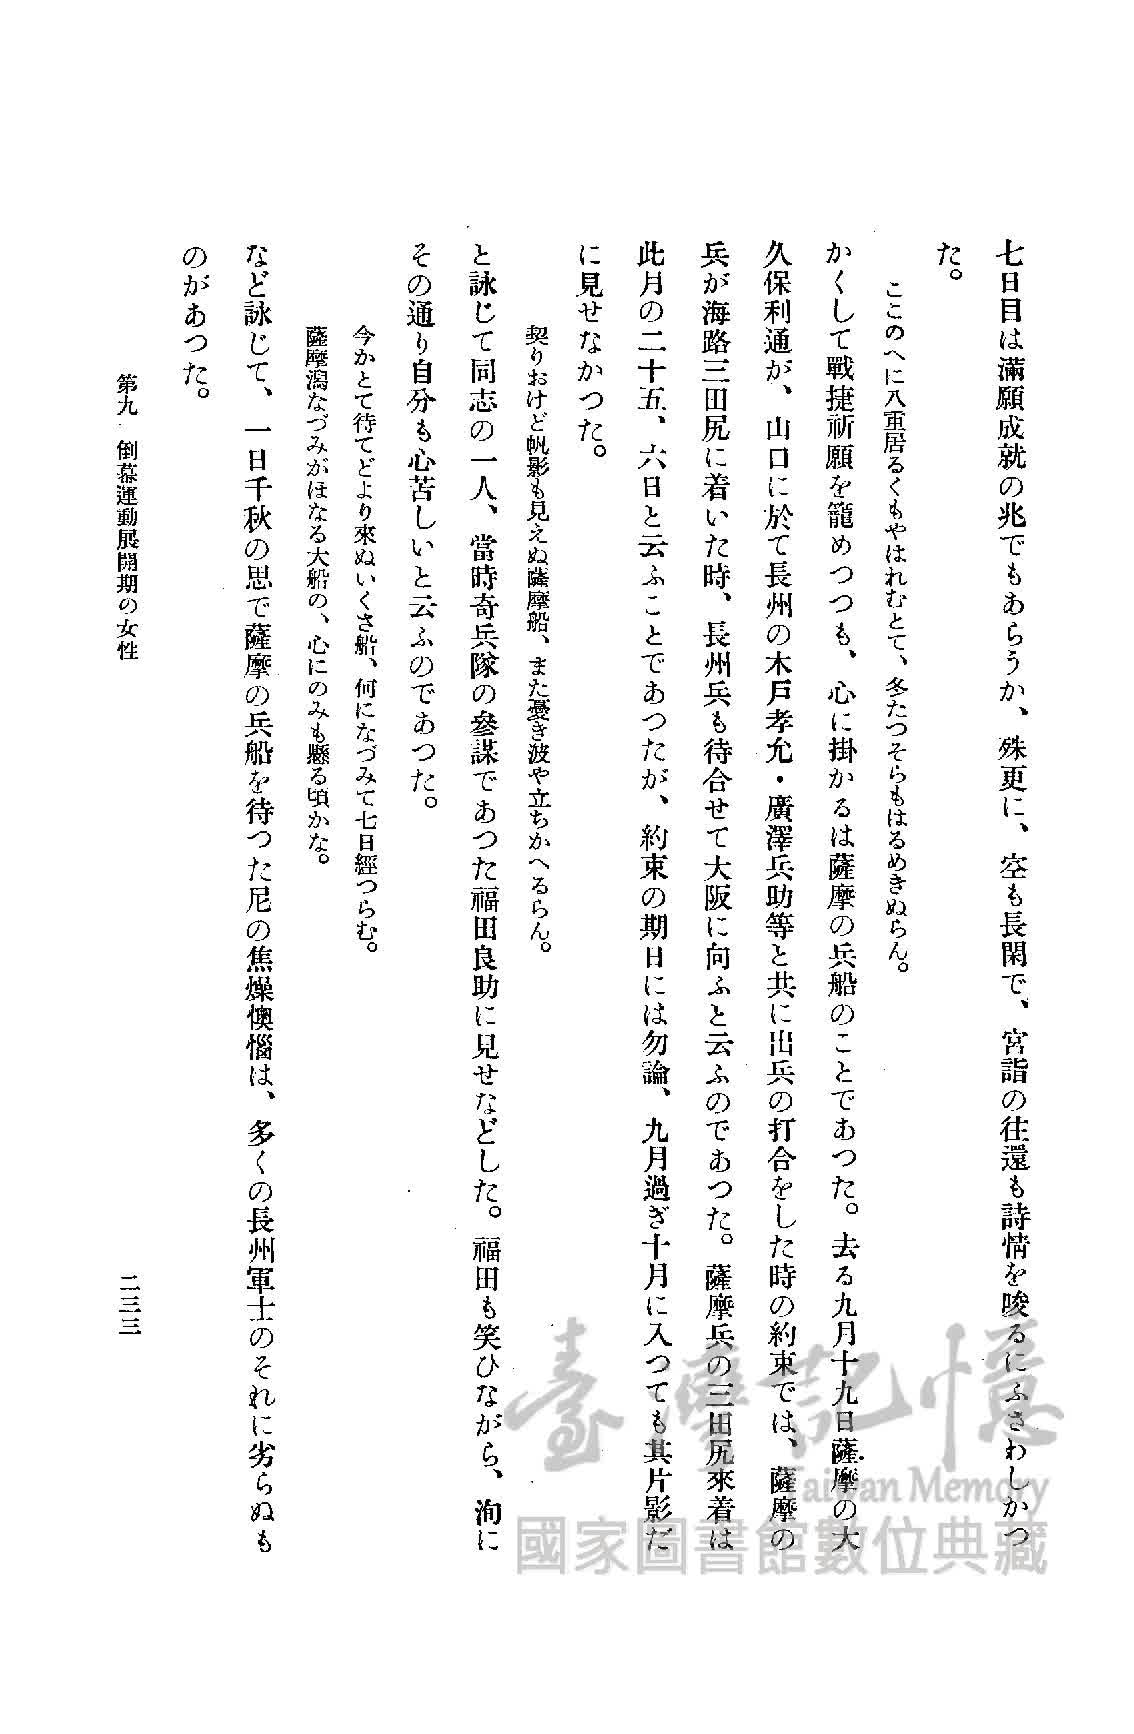 七日目は滿願成就の兆でもあらうか、殊更に、空も長閑で、宮詣の往還も詩情を唆るにふさわしかつ
た。
ここのへに八重居るくもやはれむとて、冬たつそらもはるめきぬらん。
かくして戰捷祈願を籠めつつも、心に掛かるは薩摩の兵船のことであつた。去る九月十九日薩摩の大
久保利通が、山口に於て長州の木戸孝允・廣澤兵助等と共に出兵の打合をした時の約束では、薩摩の
兵が海路三田尻に着いた時、長州兵も待合せて大阪に向ふと云ふのであつた。薩摩兵の三田尻來着は
此月の二十五、六日と云ふことであつたが、約束の期日には勿論、九月過ぎ十月に入つても其片影だ
に見せなかつた。
契りおけど帆影も見えぬ薩摩船、また憂き波や立ちかへるらん。
と詠じて同志の一人、當時奇兵隊の參謀であつた福田良助に見せなどした。福田も笑ひながら、洵に
その通り自分も心苦しいと云ふのであつた。
今かとて待てどより來ぬいくさ船、何になづみて七日經つらむ。
薩摩潟なづみがほなる大船の、心にのみも懸る頃かな。
など詠じて、一日千秋の思で薩摩の兵船を待つた尼の焦燥懊惱は、多くの長州軍士のそれに劣らぬも
のがあつた。
第九 倒幕運動展開期の女性
二三三
臺灣記憶
Taiwan Memory
國家圖書館數位典藏